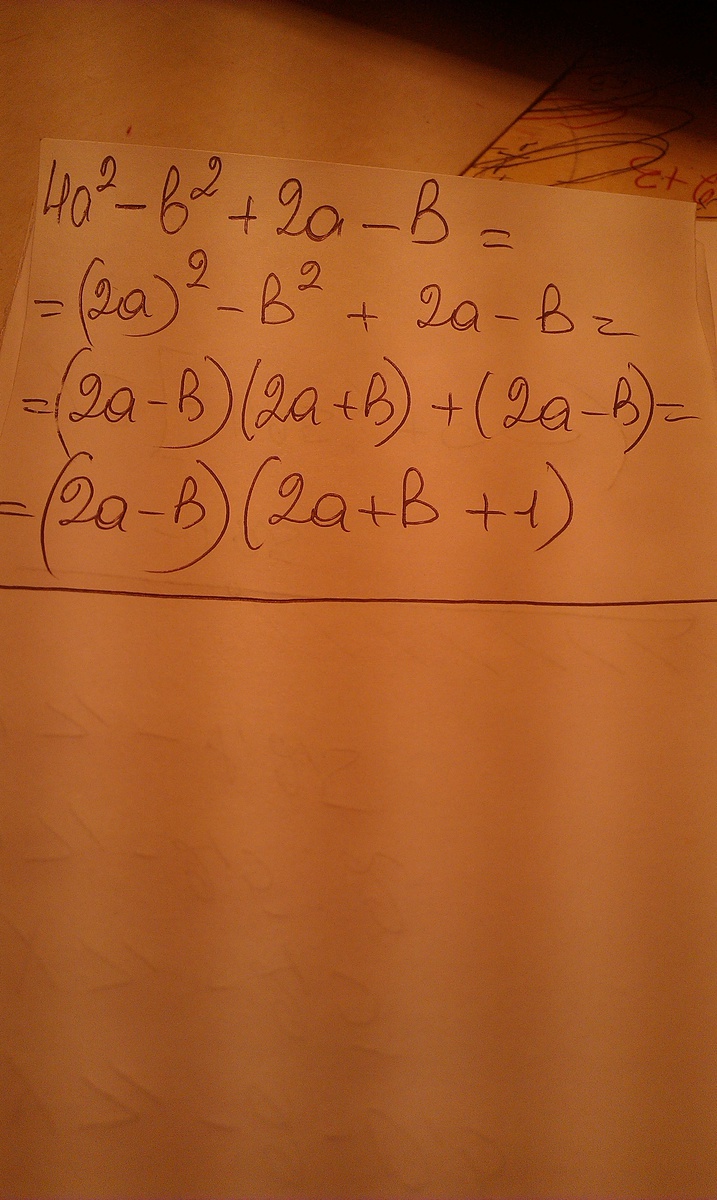 4a² - b² + 2a - b =
= (2a)² - b² + 2a - b =
= (2a - b)(2a + b) + (2a - b) =
= (2a - b)(2a + b + 1)